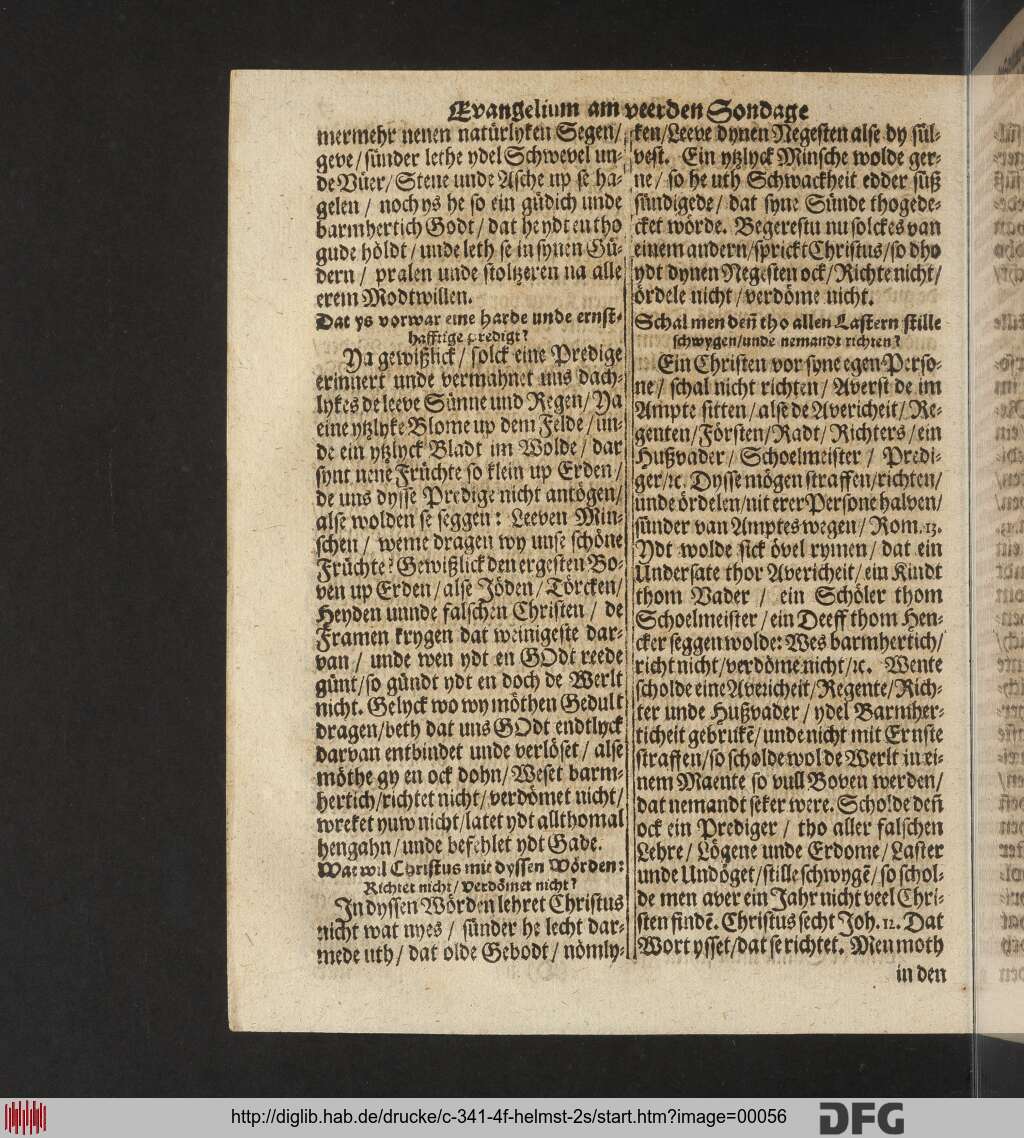 Evangelium am veerden Sondage
mermehr nenen natürlyken Segen/
geve/sünder lethe ydel Schwevel un-
de Vüer/Stene unde Asche up se ha-
gelen / noch ys he so ein güdich unde
barmhertich Godt/ dat he ydt en tho
gude höldt/unde leth se in synen Gü-
dern / pralen unde stoltzeren na alle
erem Modtwillen.
Dat ys vorwar eine harde unde ernst-
hafftige Predigt?
Ya gewißlick/ solck eine Predige
erinnert unde vermahnet uns dach-
lykes de leeve Sünne und Regen/Ya
eine ytzlyke Blome up dem Felde/un-
de ein ytzlyck Bladt im Wolde/ dar
synt nene Früchte so klein up Erden/
de uns dysse Predige nicht antögen/
alse wolden se seggen: Leeven Min-
schen/ weme dragen wy unse schöne
Früchte? Gewißlick den ergesten Bo-
ven up Erden/alse Jöden/Törcken/
Heyden unnde falschen Christen / de
Framen krygen dat weinigeste dar-
van / unde wen ydt en GOdt reede
günt/so gündt ydt en doch de Werlt
nicht. Gelyck wo wy möthen Gedult
dragen/beth dat uns GOdt endtlyck
darvan entbindet unde verlöset/ alse
möthe gy en ock dohn/Weset barm-
hertich/richtet nicht/verdömet nicht/
wreket yuw nicht/latet ydt allthomal
hengahn/unde befehlet ydt Gade.
Wat wil Christus mit dyssen Wörden:
Richtet nicht/verdömet nicht?
In dyssen Wörden lehret Christus
nicht wat nyes / sünder he lecht dar-
mede uth/ dat olde Gebodt/ nömly-
ken/Leeve dynen Negesten alse dy sül-
vest. Ein ytzlyck Minsche wolde ger-
ne/ so he uth Schwackheit edder süß
sündigede/ dat syne Sünde thogede-
cket wörde. Begerestu nu solckes van
einem andern/sprickt Christus/so dho
ydt dynen Negesten ock/Richte nicht/
ördele nicht/verdöme nicht.
Schal men deñ tho allen Lastern stille
schwygen/unde nemandt richten?
Ein Christen vor syne egen Perso-
ne/ schal nicht richten/ Averst de im
Ampte sitten/alse de Avericheit/Re-
genten/Försten/Radt/Richters/ein
Hußvader/ Schoelmeister / Predi-
ger/ꝛc. Dysse mögen straffen/richten/
unde ördelen/nit erer Persone halven/
sünder van Amptes wegen/ Rom. 13.
Ydt wolde sick övel rymen/ dat ein
Undersate thor Avericheit/ein Kindt
thom Vader / ein Schöler thom
Schoelmeister/ein Deeff thom Hen-
cker seggen wolde: Wes barmhertich/
richt nicht/verdöme nicht/ꝛc. Wente
scholde eine Avericheit/Regente/Rich-
ter unde Hußvader/ ydel Barmher-
ticheit gebrukē/unde nicht mit Ernste
straffen/so scholde wol de Werlt in ei-
nem Maente so vull Boven werden/
dat nemandt seker were. Scholde deñ
ock ein Prediger / tho aller falschen
Lehre/ Lögene unde Erdome/Laster
unde Undöget/stille schwygē/so schol-
de men aver ein Jahr nicht veel Chri-
sten findē. Christus secht Joh. 12. Dat
Wort ysset/dat se richtet. Men moth
in den
http://diglib.hab.de/drucke/c-341-4f-helmst-2s/start.htm?image=00056
DFG